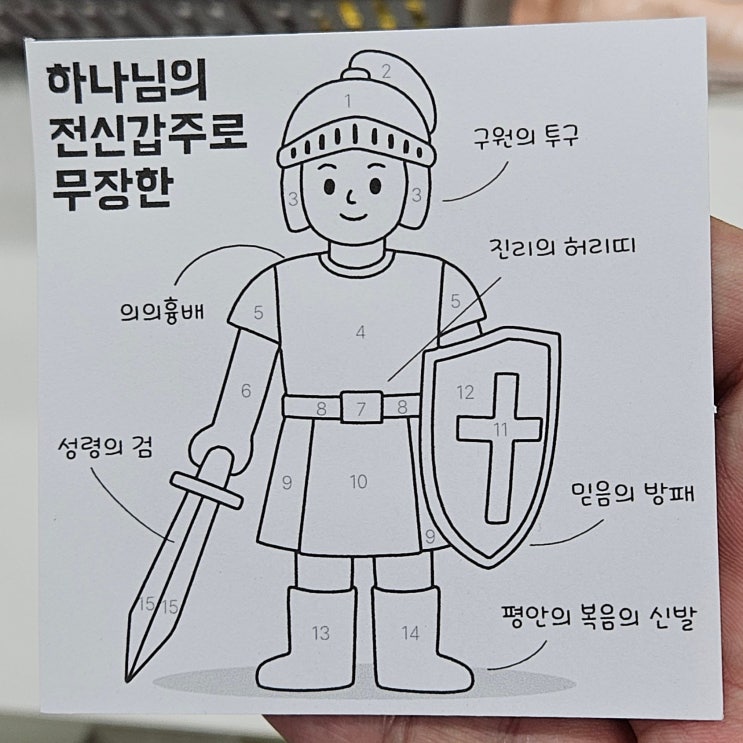 하나님의
전신갑주로
무장한
2
1
구원의 투구
3
3
진리의 허리띠
의의흉배
5
5
4
6
12
8
7
8
11
성령의 검
9
10
믿음의 방패
9
15
15
평안의 복음의 신발
13
14